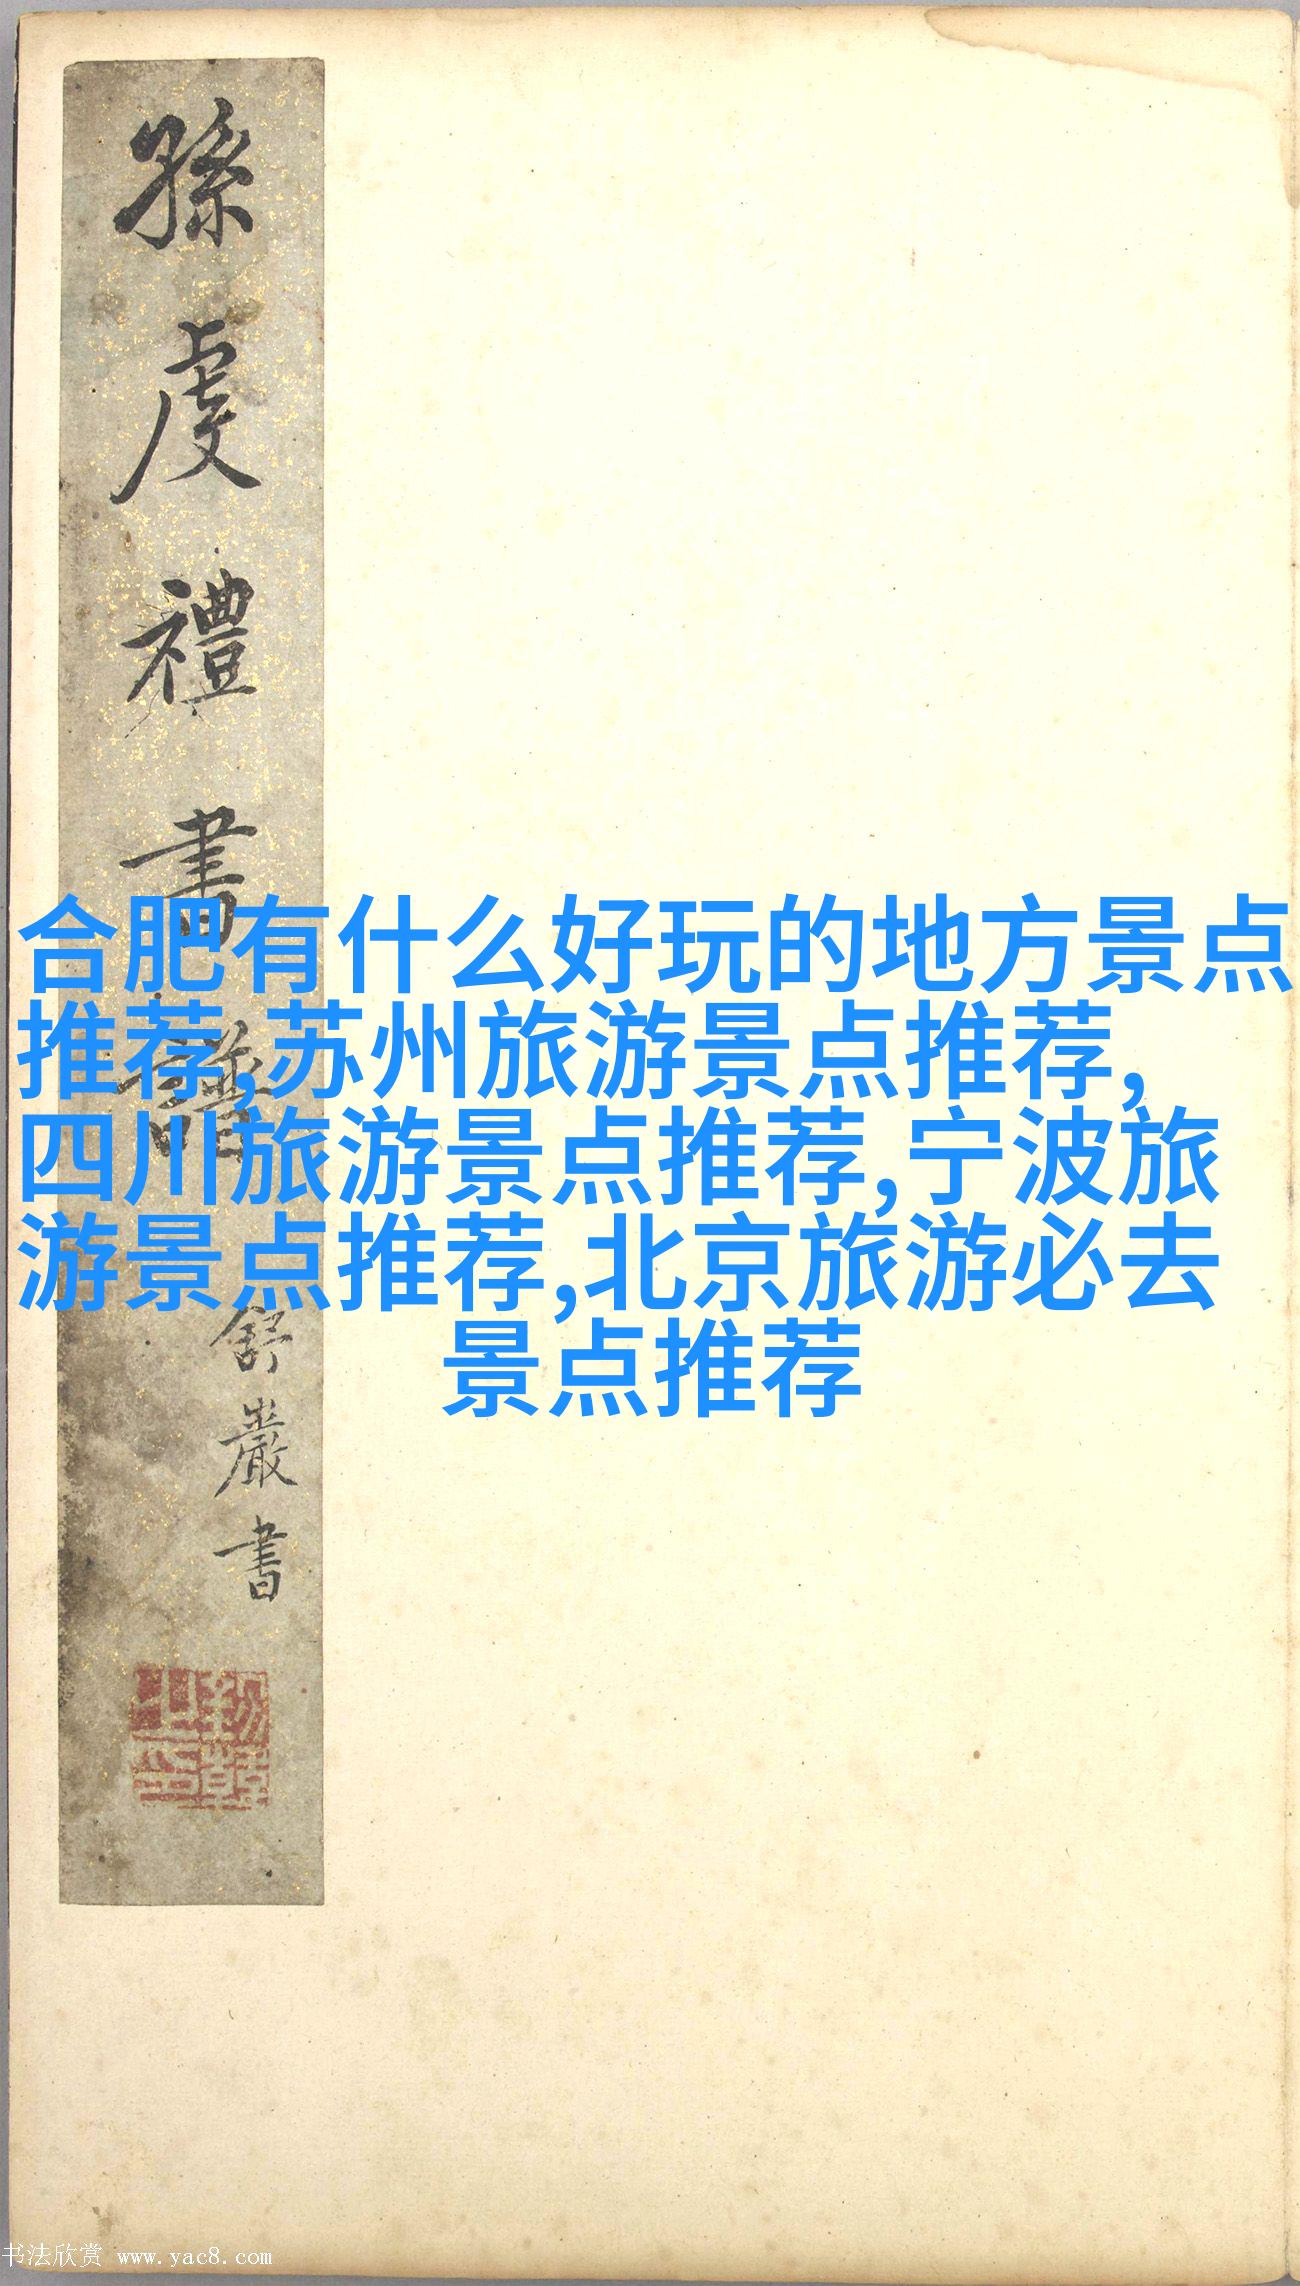 孫虔禮書譜
舒嚴書
合肥有什么好玩的地方景点
推荐,苏州旅游景点推荐,
四川旅游景点推荐,宁波旅
游景点推荐,北京旅游必去
景点推荐
书法欣赏 www.yac8.com